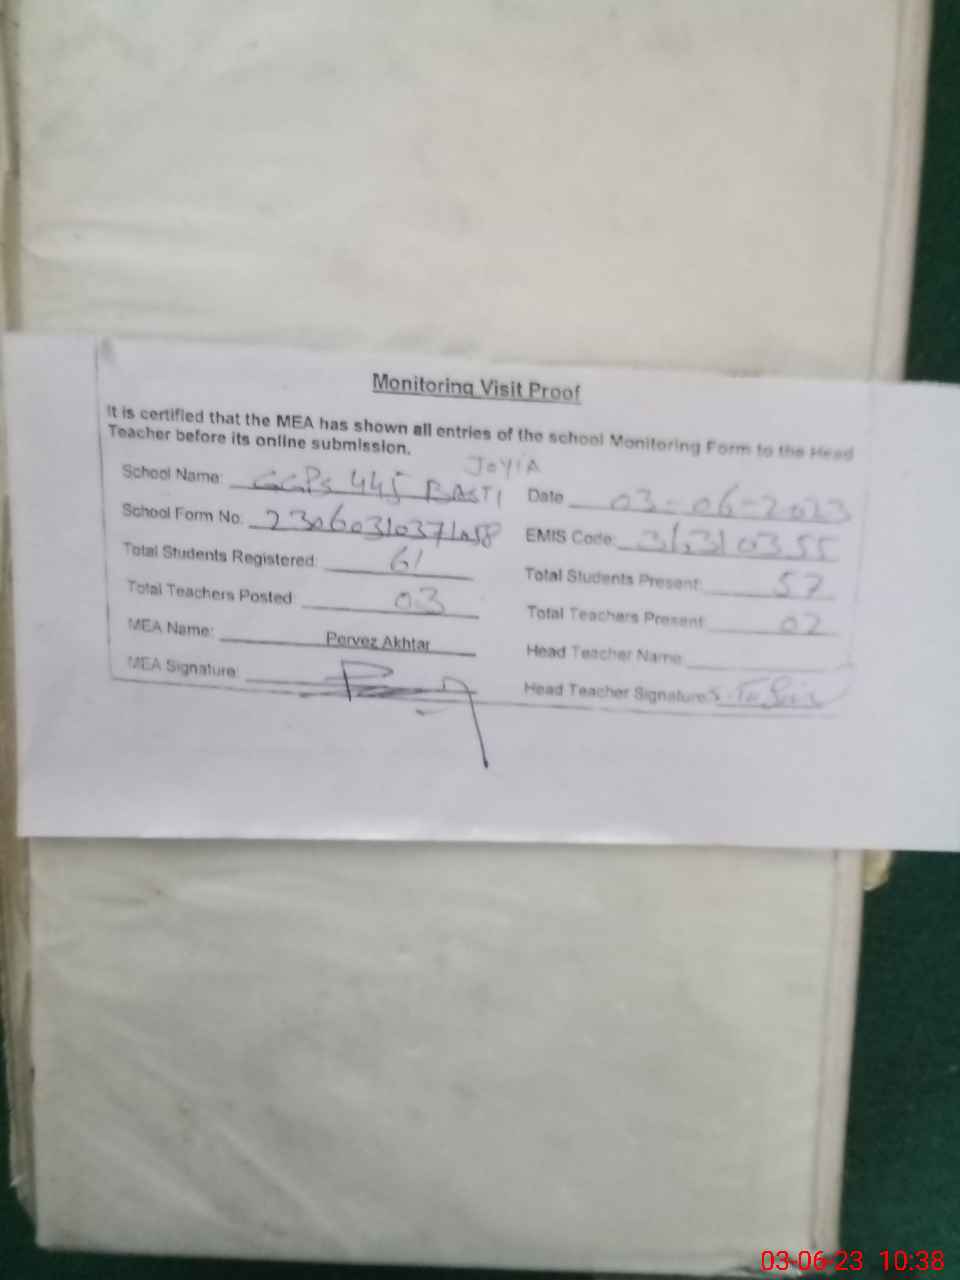 Monitoring Visit Proof
It is certified that the MEA has shown all entries of the school Monitoring Form to the Head
Teacher before its online submission.
JOYIA
School Name: GGPS 445 BASTI Date 03-06-2023
School Form No. EMIS Code: 31310355
Total Students Registered: 61 Total Students Present: 57
Total Teachers Posted: 03 Total Teachers Present: 02
MEA Name: Pervez Akhtar Head Teacher Name
MEA Signature: Head Teacher Signature:
03-06-23 10:38